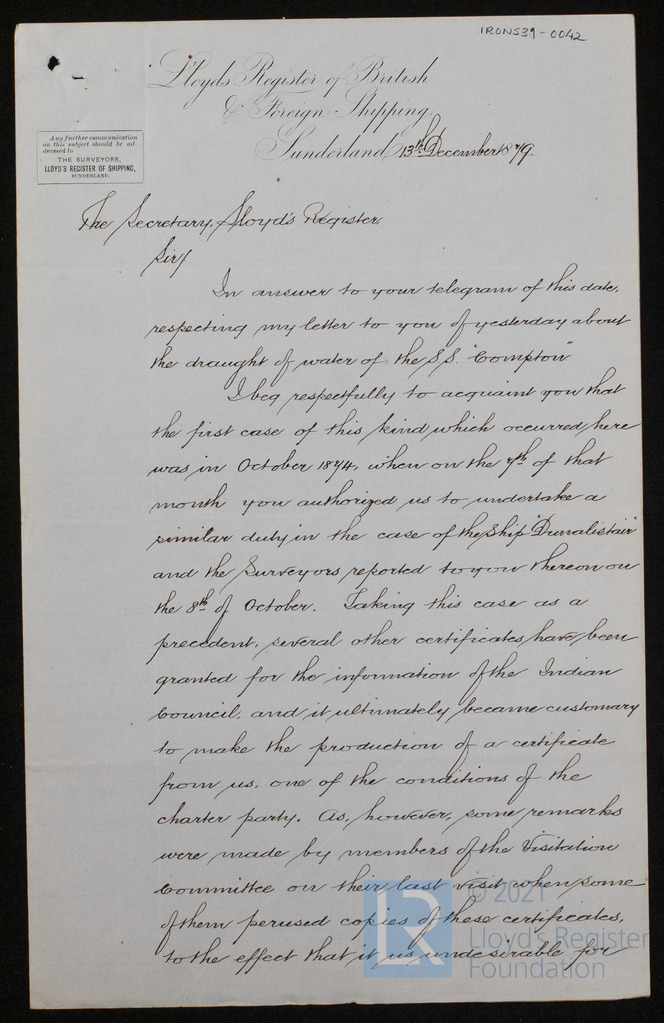 IRONS39-0042
Lloyds Register of British
& Foreign Shipping.
Sunderland 13th December 1879.
Any further communication
on this subject should be ad-
dressed to
THE SURVEYORS,
LLOYD'S REGISTER OF SHIPPING,
SUNDERLAND.
The Secretary, Lloyd's Register.
Sir/
In answer to your telegram of this date,
respecting my letter to you of yesterday about
the draught of water of the S.S. "Compton"
I beg respectfully to acquaint you that
the first case of this kind which occurred here
was in October 1874, when on the 7th of that
month you authorized us to undertake a
similar duty in the case of the Ship "Dunalistair"
and the Surveyors reported to you thereon on
the 8th of October. Taking this case as a
precedent, several other certificates have been
granted for the information of the Indian
Council, and it ultimately became customary
to make the production of a certificate
from us, one of the conditions of the
charter party. As, however, some remarks
were made by members of the Visitation
Committee on their last visit when some
of them perused copies of these certificates,
to the effect that it is undesirable for
© 2021
LR
Lloyd's Register
Foundation